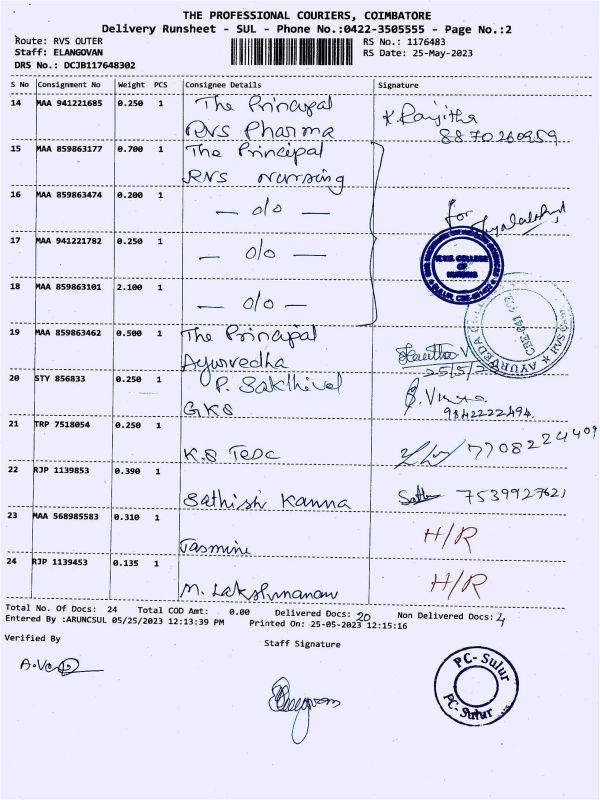 THE PROFESSIONAL COURIERS, COIMBATORE
Delivery Runsheet - SUL - Phone No.:0422-3505555 - Page No.:2
Route: RVS OUTER RS No.: 1176483
Staff: ELANGOVAN RS Date: 25-May-2023
DRS No.: DCJB117648302
S No Consignment No Weight PCS Consignee Details Signature
14 MAA 941221685 0.250 1 The Principal K. Ranjitha
RVS Pharma 8870260959
15 MAA 859863177 0.700 1 The Principal
RVS nursing
16 MAA 859863474 0.200 1 — o/o — for
17 MAA 941221782 0.250 1 — o/o —
R.V.S. COLLEGE OF NURSING
18 MAA 859863101 2.100 1 — o/o —
19 MAA 859863462 0.500 1 The Principal
Ayurvedha 25/5/2
AYURVEDA
20 STY 856833 0.250 1 P. Sakthivel
GKS 9842222494.
21 TRP 7518054 0.250 1 K.S Tesc 7708224409
22 RJP 1139853 0.390 1 Sathish Kanna 7539927621
23 MAA 568985583 0.310 1 Jasmine H/R
24 RJP 1139453 0.135 1 M. Lakshmanan H/R
Total No. Of Docs: 24 Total COD Amt: 0.00 Delivered Docs: 20 Non Delivered Docs: 4
Entered By :ARUNCSUL 05/25/2023 12:13:39 PM Printed On: 25-05-2023 12:15:16
Verified By Staff Signature
PC- Sulur
PC- Sulur